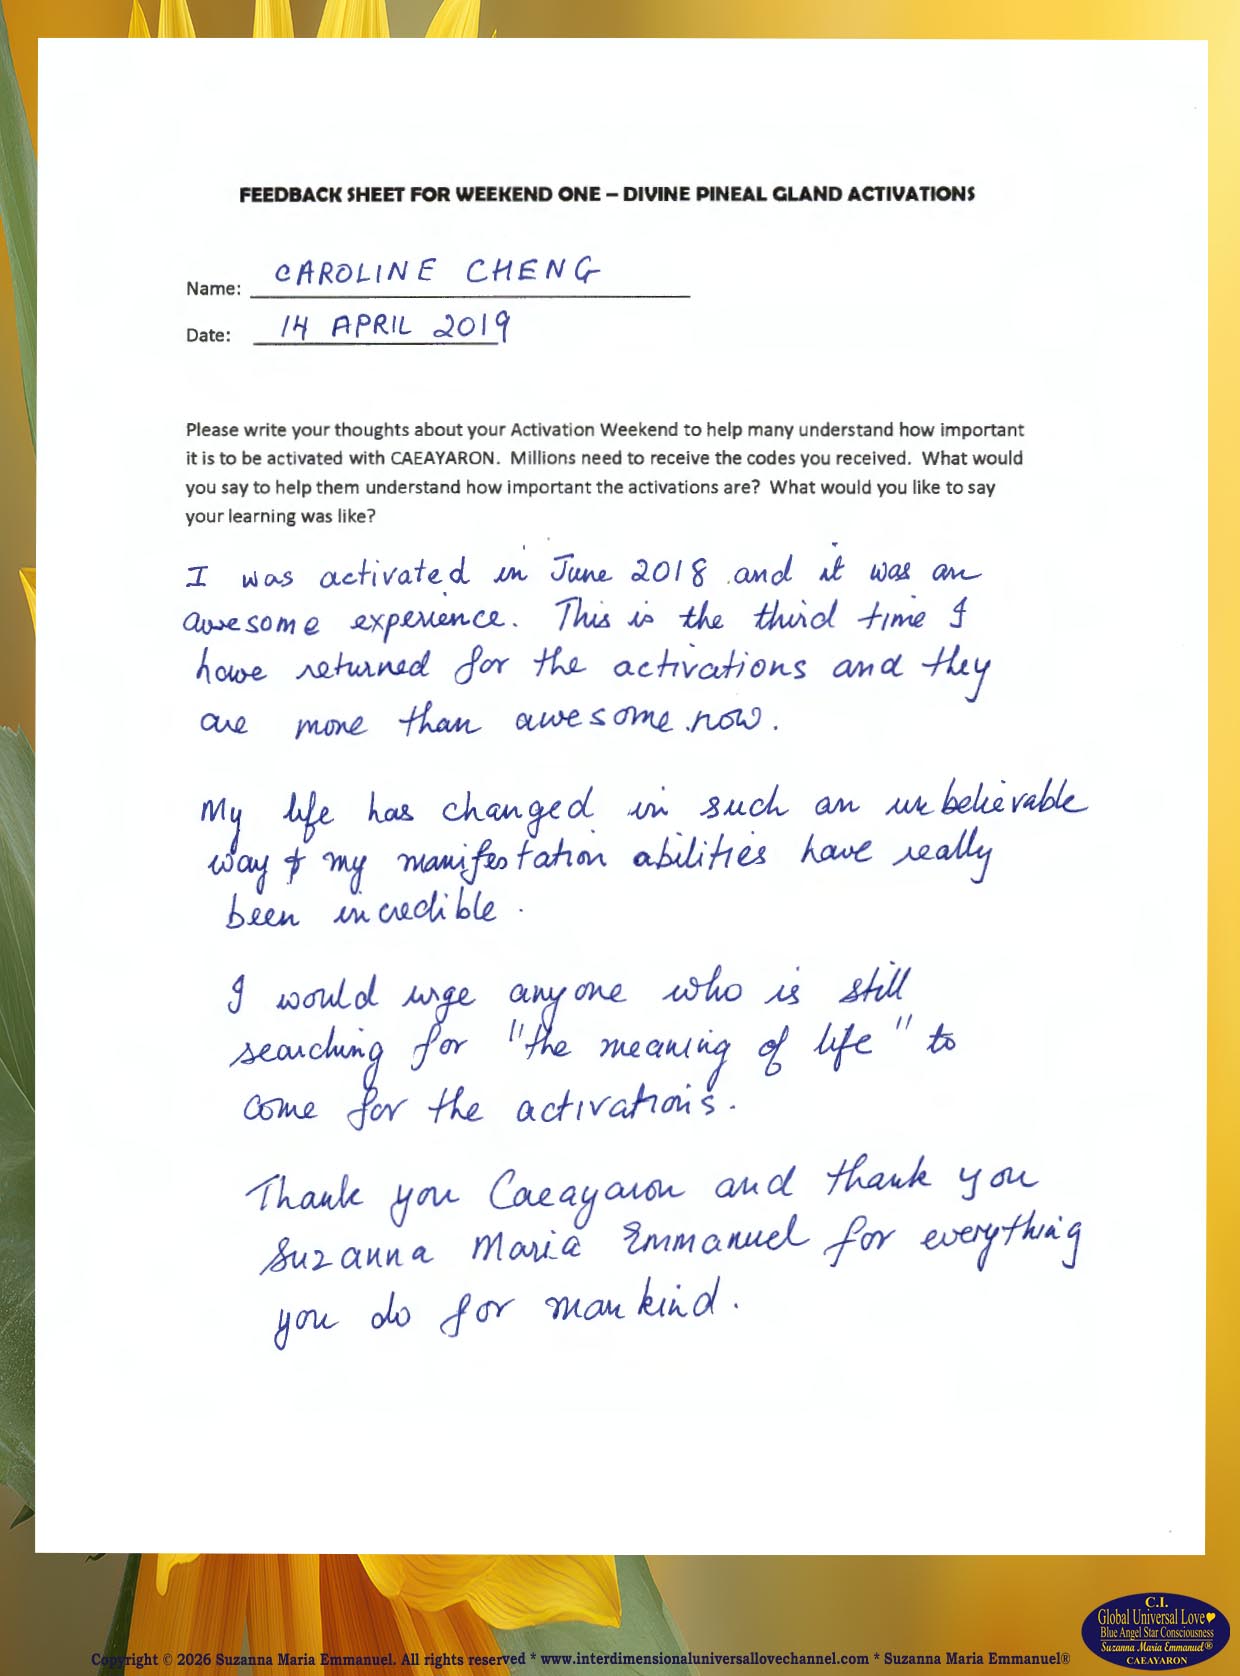 FEEDBACK SHEET FOR WEEKEND ONE – DIVINE PINEAL GLAND ACTIVATIONS
Name: CAROLINE CHENG
Date: 14 APRIL 2019
Please write your thoughts about your Activation Weekend to help many understand how important
it is to be activated with CAEAYARON. Millions need to receive the codes you received. What would
you say to help them understand how important the activations are? What would you like to say
your learning was like?
I was activated in June 2018 and it was an
awesome experience. This is the third time I
have returned for the activations and they
are more than awesome now.
My life has changed in such an unbelievable
way & my manifestation abilities have really
been incredible.
I would urge anyone who is still
searching for "the meaning of life" to
come for the activations.
Thank you Caeayaron and thank you
Suzanna Maria Emmanuel for everything
you do for mankind.
C.I.
Global Universal Love
Blue Angel Star Consciousness
Suzanna Maria Emmanuel®
CAEAYARON
Copyright © 2026 Suzanna Maria Emmanuel. All rights reserved * www.interdimensionaluniversallovechannel.com * Suzanna Maria Emmanuel®